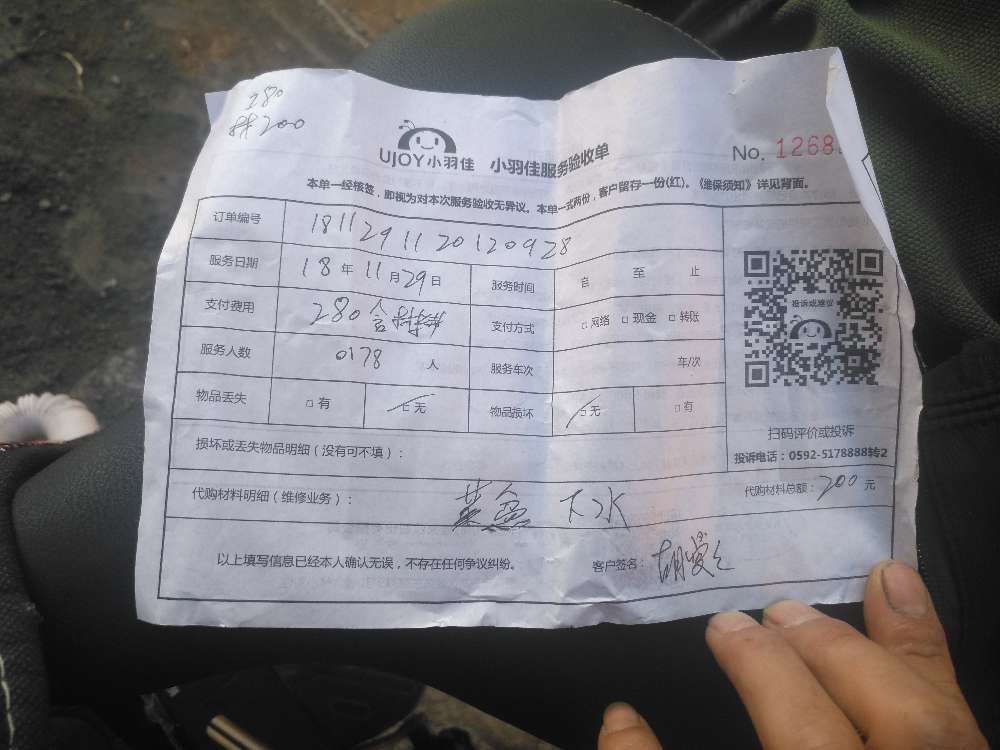 280
材200
UJOY小羽佳 小羽佳服务验收单
No. 1268
本单一经核签，即视为对本次服务验收无异议。本单一式两份，客户留存一份(红)。《维保须知》详见背面。
订单编号 1811291120120928
服务日期 18年11月29日 服务时间 自 至 止
支付费用 280含 支付方式 □网络 □现金 □转账
服务人数 0178 人 服务车次 车/次
物品丢失 □有 □无 物品损坏 □无 □有
投诉或建议
扫码评价或投诉
投诉电话：0592-5178888转2
损坏或丢失物品明细（没有可不填）：
代购材料明细（维修业务）： 菜盆 下水 代购材料总额：200元
以上填写信息已经本人确认无误，不存在任何争议纠纷。 客户签名：